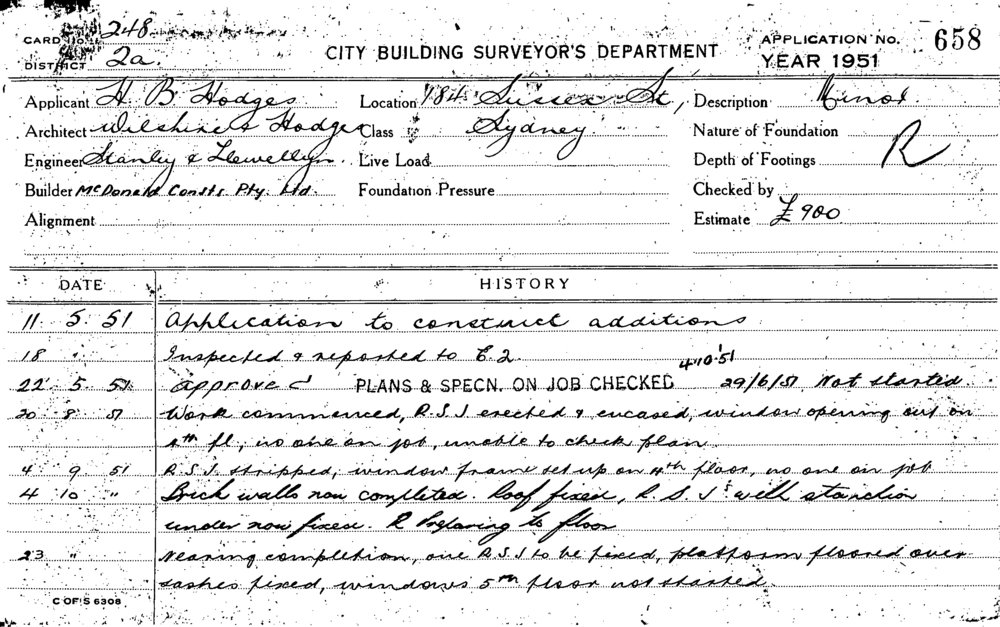 CARD No. 248
DISTRICT 2a.
CITY BUILDING SURVEYOR'S DEPARTMENT
APPLICATION No. 658
YEAR 1951
Applicant H B Hodges
Location 184 Sussex St,
Description Minor
Architect Wilshire & Hodges
Class Sydney
Nature of Foundation R
Engineer Stanley & Llewellyn
Live Load
Depth of Footings
Builder McDonald Consts. Pty. Ltd.
Foundation Pressure
Checked by
Alignment
Estimate £900
DATE HISTORY
11 5. 51 Application to construct additions
18 " Inspected & reported to E.2.
4.10.51
22 5 51 approved PLANS & SPECN. ON JOB CHECKED 29/6/51 Not started
20 8 51 Work commenced, R.S.J erected & encased, window opening out on
4th fl, no one on job, unable to check plan
4 9 51 R.S.J stripped, window frame set up on 4th floor, no one on job
4 10 " Brick walls now completed. Roof fixed, R S J with stanchion
under now fixed. Preparing to floor
23 " Nearing completion, one R.S.J to be fixed, platform floored over
sashes fixed, windows 5th floor not started
C OF S 6308